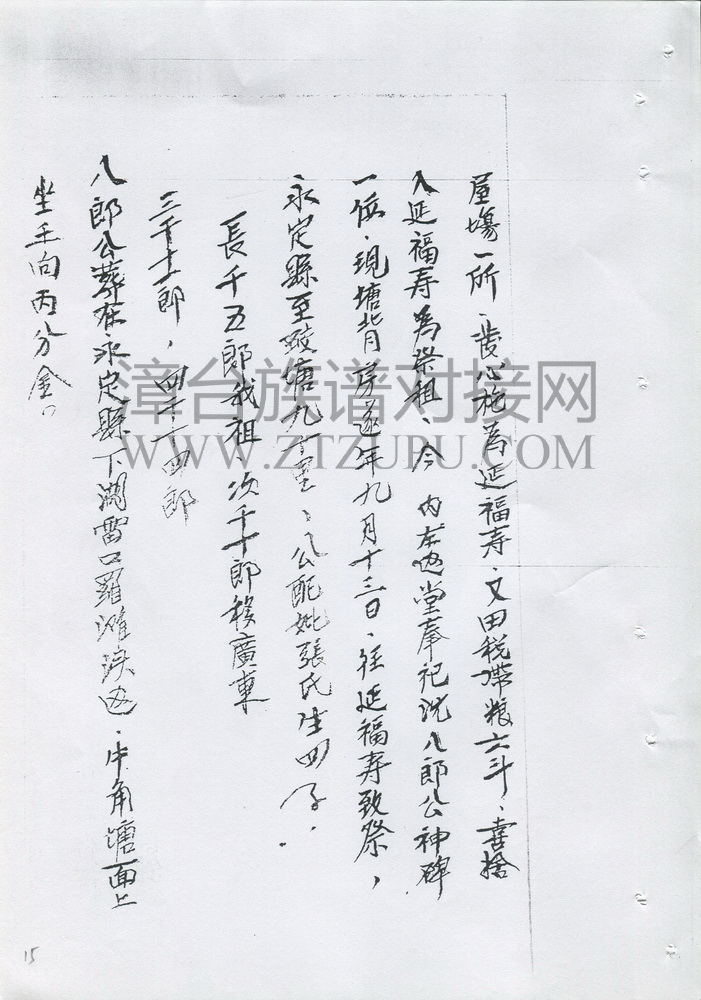 屋場一所、發心施為延福寿、又田税帶粮六斗、喜捨
入延福寿為祭祖、今内左边堂奉祀沈八郎公神碑
一位、現塘背房逐年九月十三日、往延福寿致祭，
永定縣至塘九十里、公配妣張氏生四子．
長千五郎我祖、次千十郎移廣東
三千十二郎，四千十四郎
八郎公葬在永定縣下湖雷口羅灘边．牛角塘面上
坐壬向丙分金。
漳台族谱对接网
WWW.ZTZUPU.COM
15